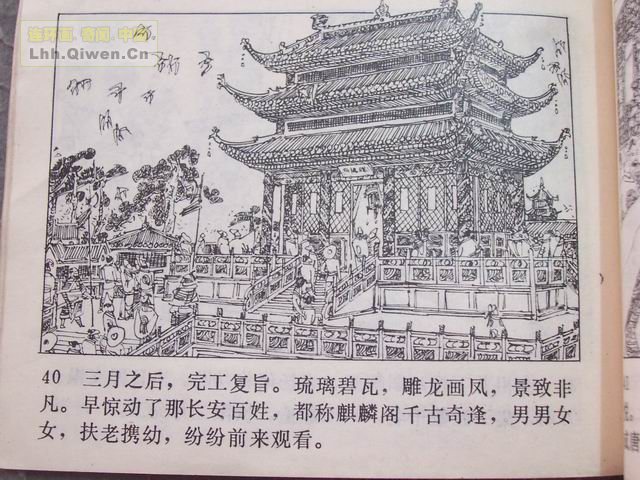 连环画·奇闻·中国
Lhh.Qiwen.Cn
40 三月之后，完工复旨。琉璃碧瓦，雕龙画凤，景致非
凡。早惊动了那长安百姓，都称麒麟阁千古奇逢，男男女
女，扶老携幼，纷纷前来观看。